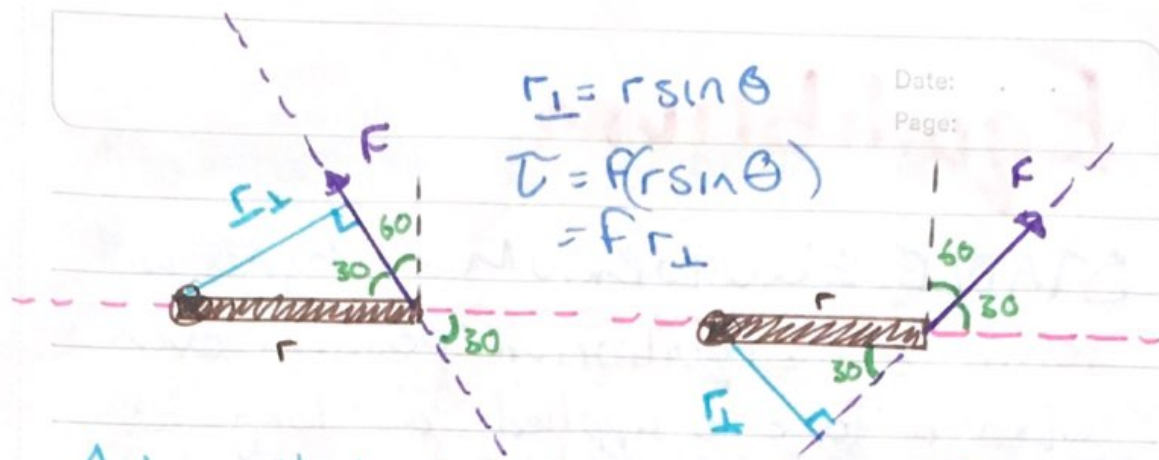 Date: . . .
Page:
r⊥ = r sin θ
τ = F(r sin θ)
= F r⊥
F
r⊥
60
30
r
30
F
60
30
r
30
r⊥